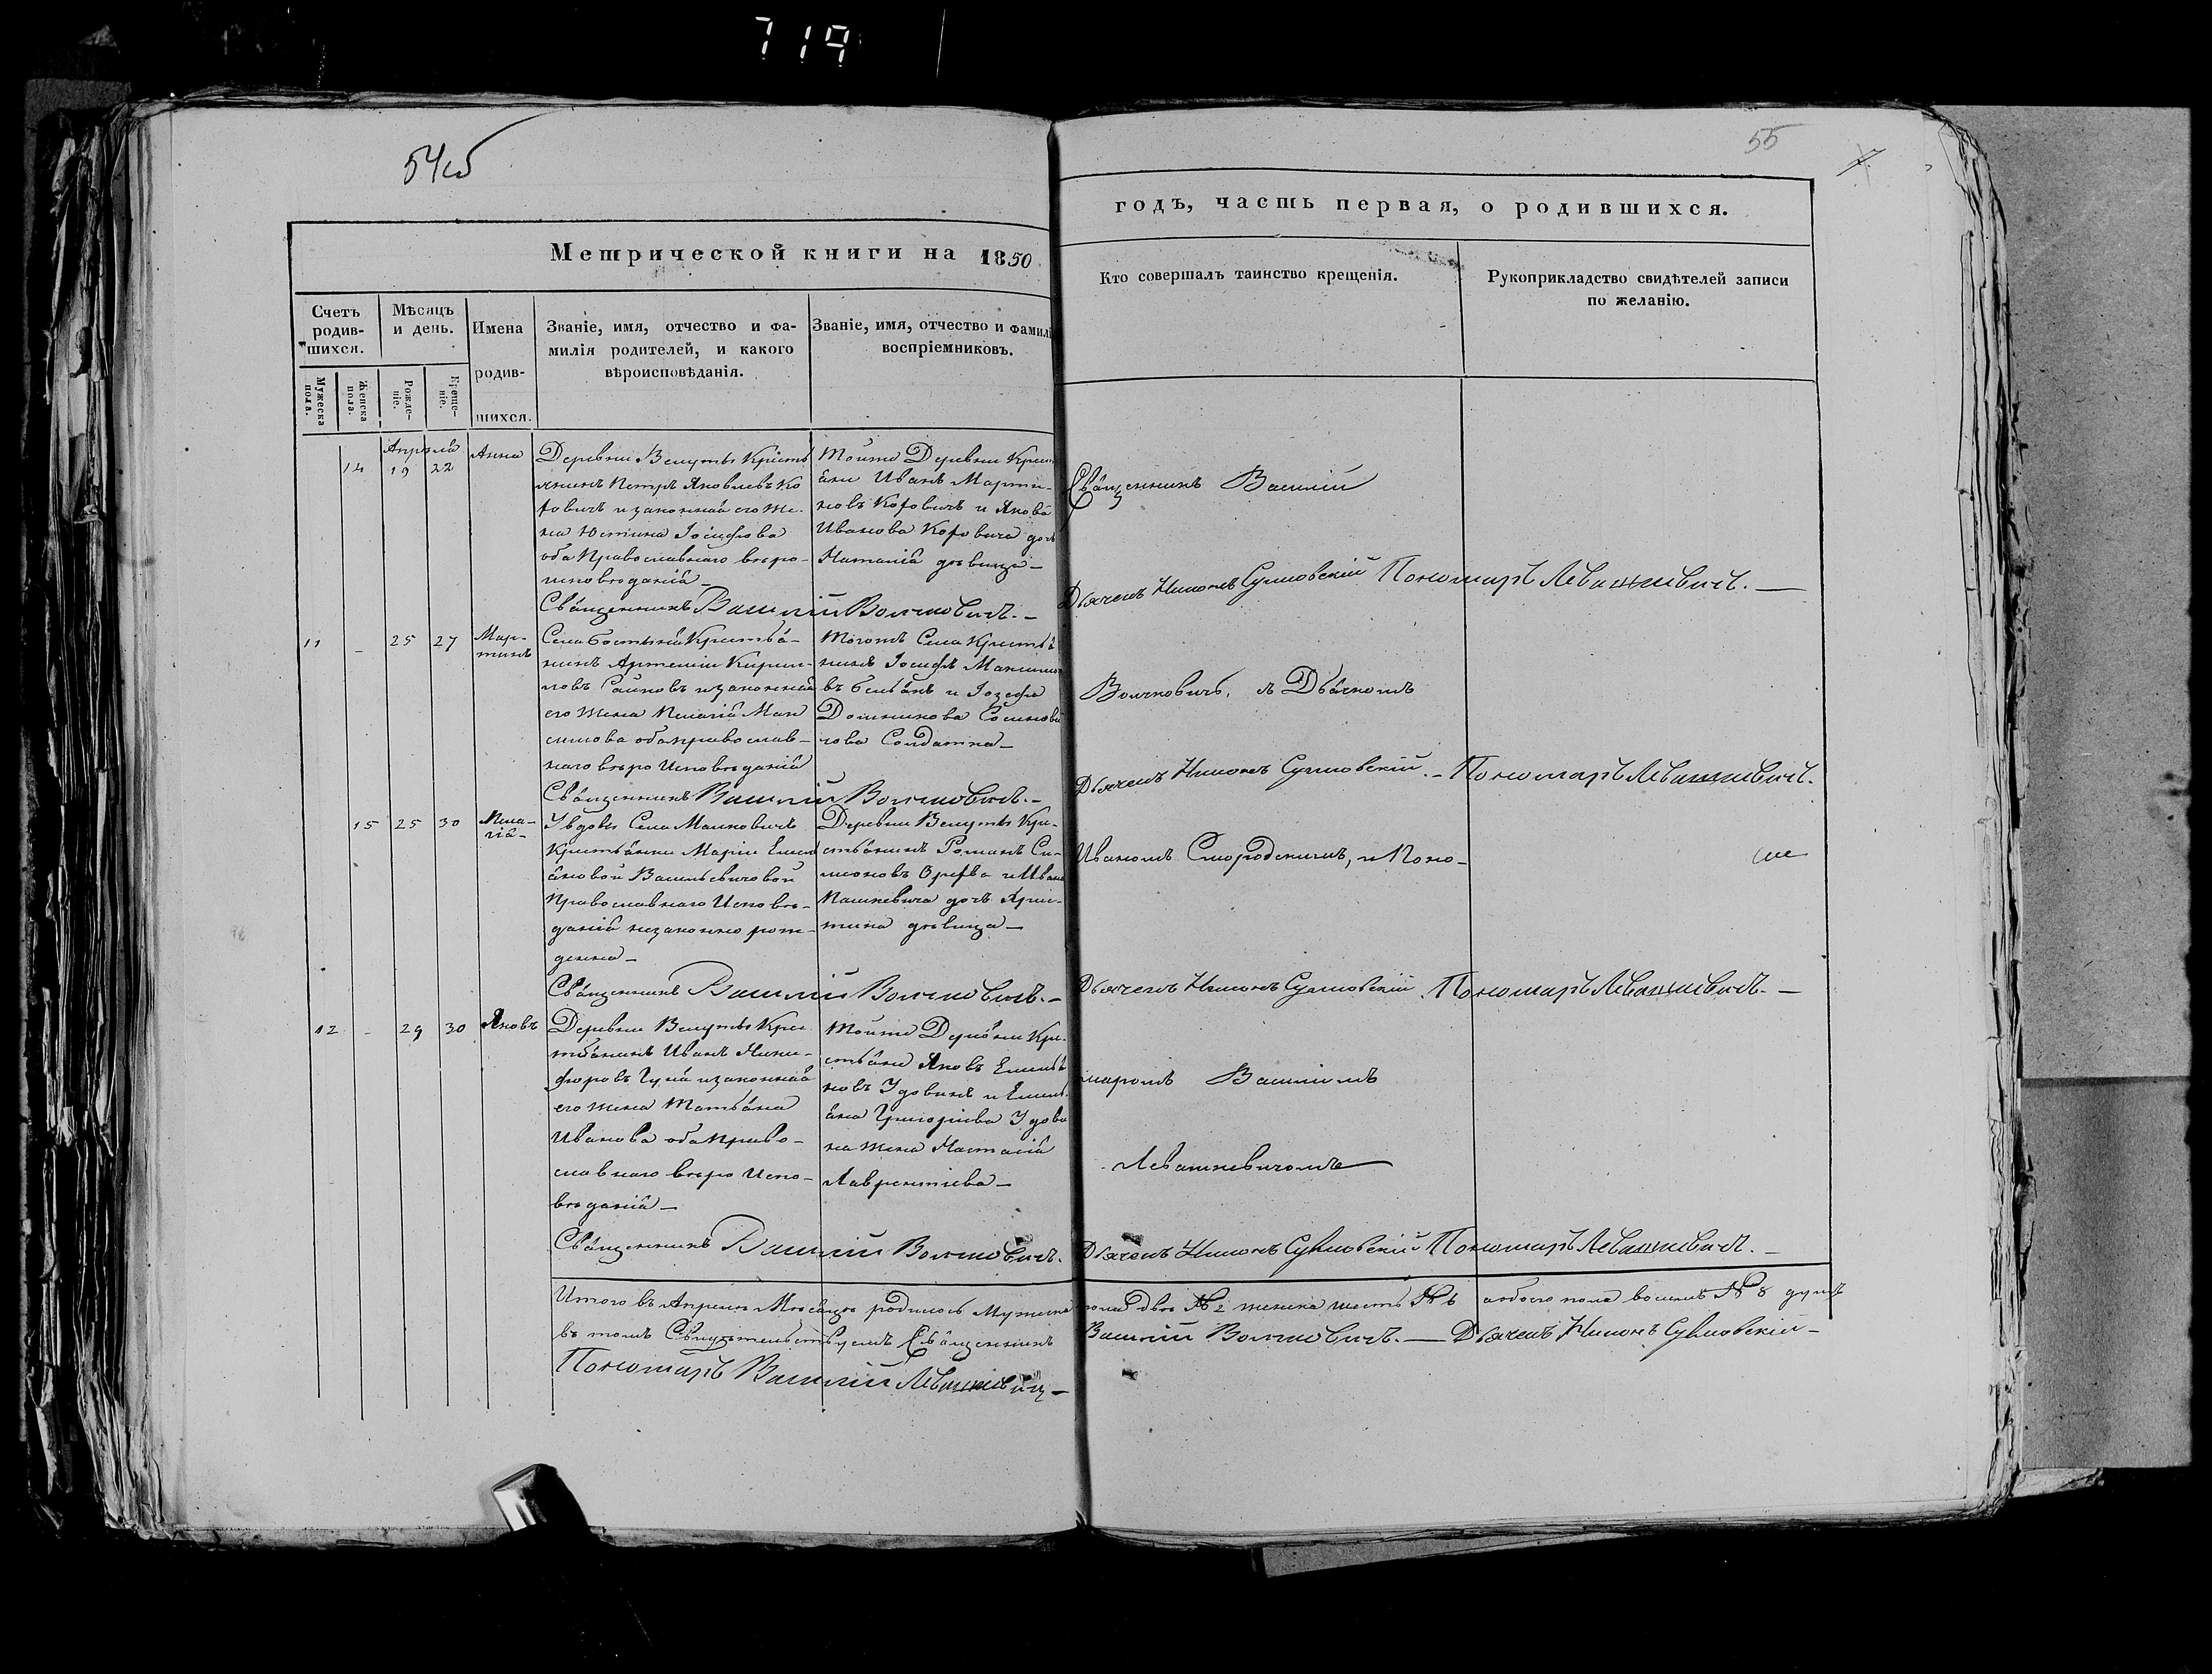 719
54об
55
Метрической книги на 1850
годъ, часть первая, о родившихся.
Счетъ родив-шихся.
Мѣсяцъ и день.
Имена родив-шихся.
Званіе, имя, отчество и фа-
милія родителей, и какого
вѣроисповѣданія.
Званіе, имя, отчество и фамилі
воспріемниковъ.
Кто совершалъ таинство крещенія.
Рукоприкладство свидѣтелей записи
по желанію.
Мужеска пола.
Женска пола.
Рожде-ніе.
Креще-ніе.
Апрѣля
14 19 22 Анна
Деревни Велуты Крість
янинъ Петръ Яковлевъ Ко
ковичъ и законная его же-
на Юстина Іосифова
оба Православнаго вѣро-
исповѣданія
Тойже Деревни Крест
яни Иванъ Марти-
новъ Коковичъ и Якова
Иванова Коковича дочь
Наталія дѣвица
Священникъ Василій
Священникъ Василій Волчковичъ.
Дьячекъ Никонъ Сулковскій Пономаръ Левашкевичъ.
11 - 25 27 Мар-
тинъ
Села Бостыня Крестья-
нинъ Артемій Кирил-
ловъ Саковъ и законная
его жена Пелагія Мак
симова оба православ-
наго вѣро Исповѣданія
Тогожъ Села Крестья
нинъ Іосифъ Максимо
въ Бельянъ и Іозефа
Домникова
Солдатка
Волчковичъ, съ Дьячкомъ
Священникъ Василій Волчковичъ.
Дьячекъ Никонъ Сулковскій. Пономаръ Левашкевичъ.
15 25 30 Пела-
гія
У вдовы Села Малковичъ
Крестьянки Маріи Емел
яновой Васильевичовой
Православнаго Исповѣ-
данія незаконно рож-
денна
Деревни Велуты Кре-
стьянинъ Романъ Си-
моновъ и Ивана
Пашкевича дочь Хрис-
тина дѣвица
Иваномъ Смородскимъ, и Поно-
Священникъ Василій Волчковичъ.
Дьячекъ Никонъ Сулковскій Пономаръ Левашкевичъ.
12 - 29 30 Яковъ
Деревни Велуты Кре
стьянинъ Иванъ Ники-
форовъ и законная
его жена Татьяна
Иванова оба Право-
славнаго вѣро Испо-
вѣданія
Тойже Деревни Кре-
стьяни Яковъ Емелья
новъ Удовинъ и Емель
яна Григоріева Удови
на жена Настасія
Лаврентіева
маромъ Василіемъ
Левашкевичомъ
Священникъ Василій Волчковичъ.
Дьячекъ Никонъ Сулковскій Пономаръ Левашкевичъ.
Итого въ Апрелѣ Мѣсяцѣ родилось Мужеска пола два № 2 женска шесть № 6 а обоего пола восемь № 8 душъ
въ томъ Свидѣтельствуемъ Священникъ Василій Волчковичъ. Дьячекъ Никонъ Сулковскій
Пономаръ Василій Левашкевичъ